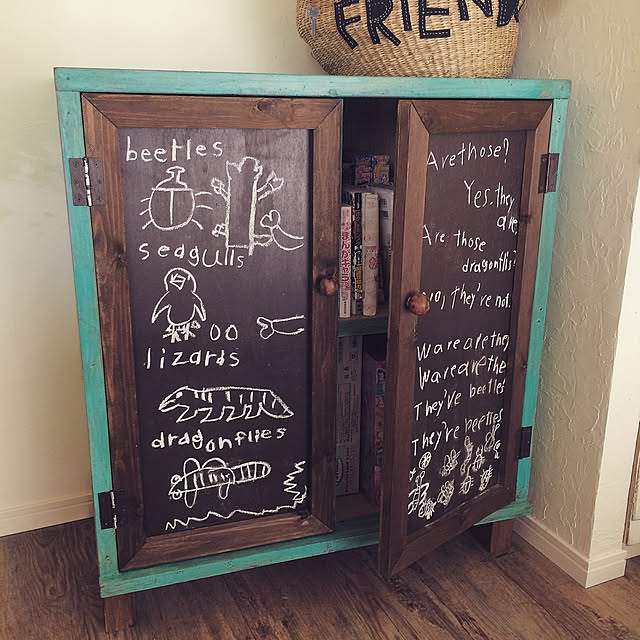 FRIEND
beetles
seagulls
lizards
dragonflies
Arethose?
Yes.they
are
Are those
dragonflis?
No, They're not.
Ware are they
Ware are the
They've beetles
They're beetles
まんがキャラ